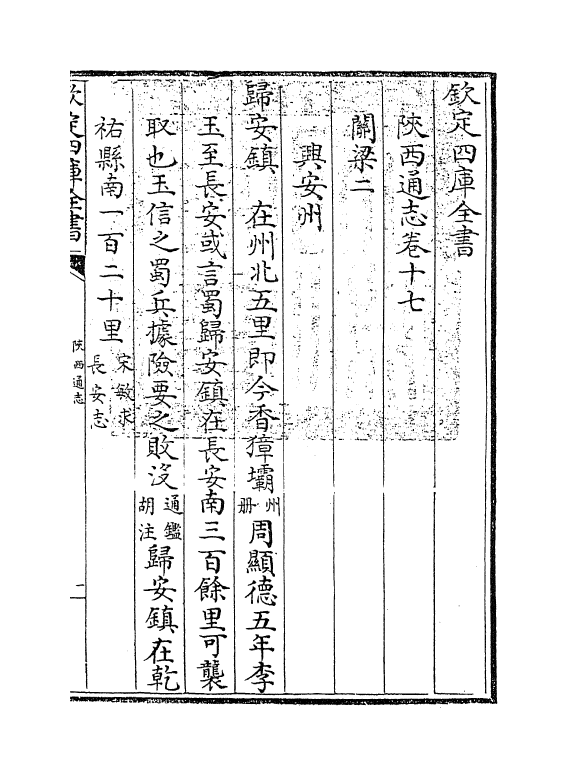 欽定四庫全書
陜西通志卷十七
關梁二
興安州
歸安鎮　在州北五里即今香獐壩州册周顯德五年李
玉至長安或言蜀歸安鎮在長安南三百餘里可襲
取也玉信之蜀兵據險要之敗没通鑑胡注歸安鎮在乾
祐縣南一百二十里宋敏求長安志
欽定四庫全書
陜西通志
二